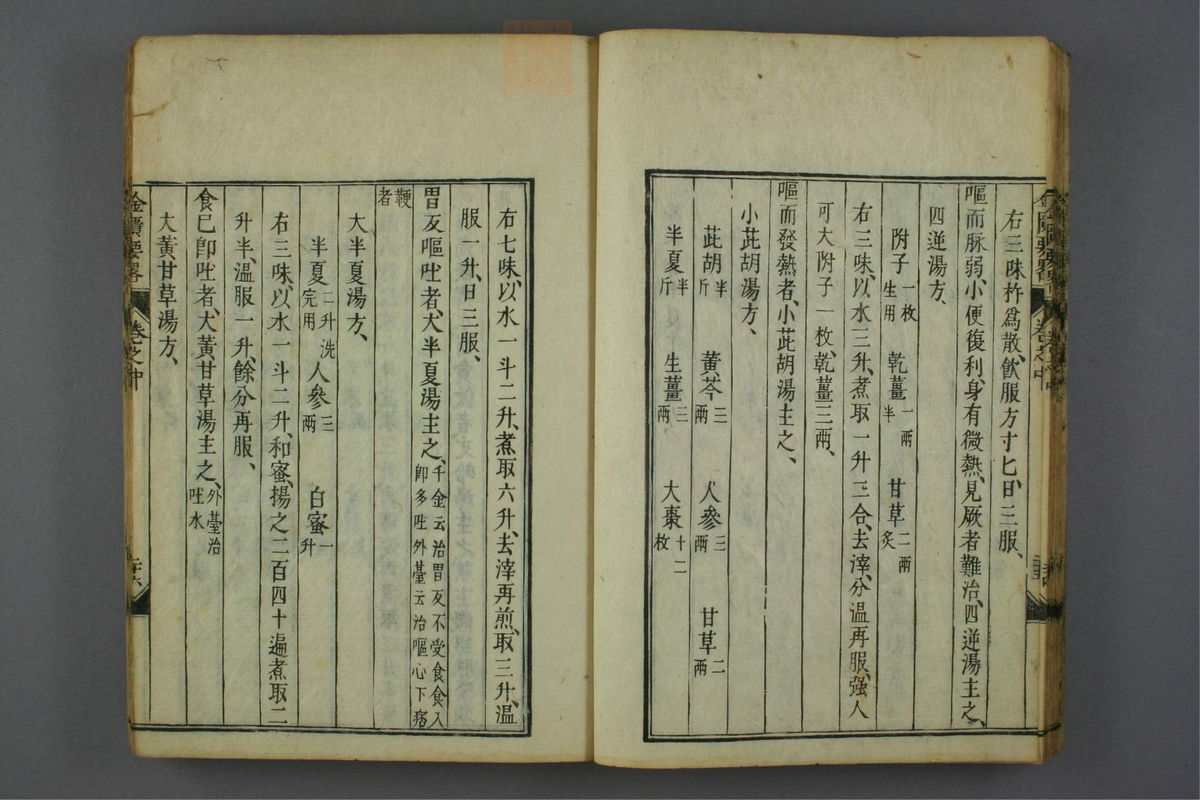 右三味杵爲散、飲服方寸匕、日三服、
嘔而脉弱、小便復利、身有微熱、見厥者難治、四逆湯主之、
四逆湯方、
附子一枚生用 乾薑一兩半 甘草二兩炙
右三味、以水三升、煮取一升三合、去滓、分溫再服、强人
可大附子一枚、乾薑三兩、
嘔而發熱者、小茈胡湯主之、
小茈胡湯方、
茈胡半斤 黃芩三兩 人參三兩 甘草二兩
半夏半斤 生薑三兩 大棗十二枚
右七味、以水一斗二升、煮取六升、去滓再煎、取三升、溫
服一升、日三服、
胃反嘔吐者、大半夏湯主之、千金云治胃反不受食食入卽多吐外臺云治嘔心下痞
鞕者
大半夏湯方、
半夏二升洗完用 人參三兩 白蜜一升
右三味、以水一斗二升、和蜜、揚之二百四十遍、煮取二
升半、溫服一升、餘分再服、
食已卽吐者、大黃甘草湯主之、外臺治吐水
大黃甘草湯方、
金匱要畧 卷之中